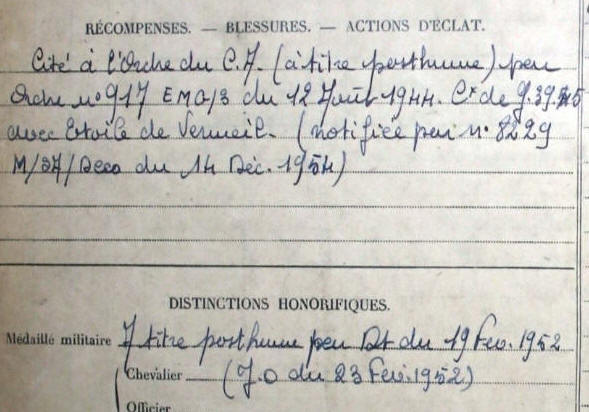 RÉCOMPENSES. — BLESSURES. — ACTIONS D'ÉCLAT.
Cité à l'Ordre du C.A. (à titre posthume) par
Ordre n° 917 EMG/3 du 12 Août 1944. Cx de g. 39.45
avec Etoile de Vermeil. (notifiée par n° 8229
M/27/Deco du 14 Déc. 1954)
DISTINCTIONS HONORIFIQUES.
Médaillé militaire A titre posthume par Dt du 19 Fev. 1952
Chevalier (J.O du 23 Fev. 1952)
Officier